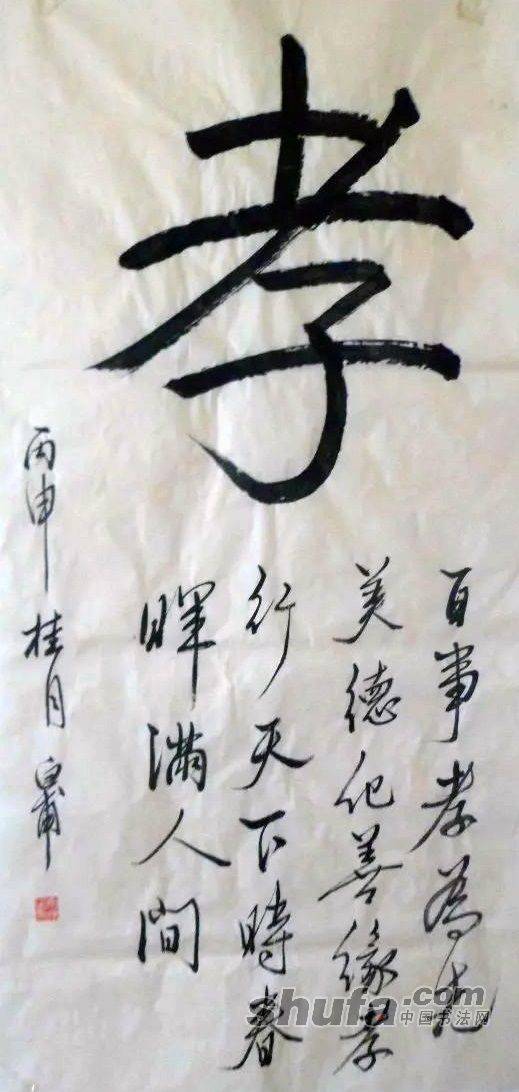 孝
百事孝為先
美德化善緣孝
行天下時春
暉滿人間
丙申桂月
shufa.com
中国书法网